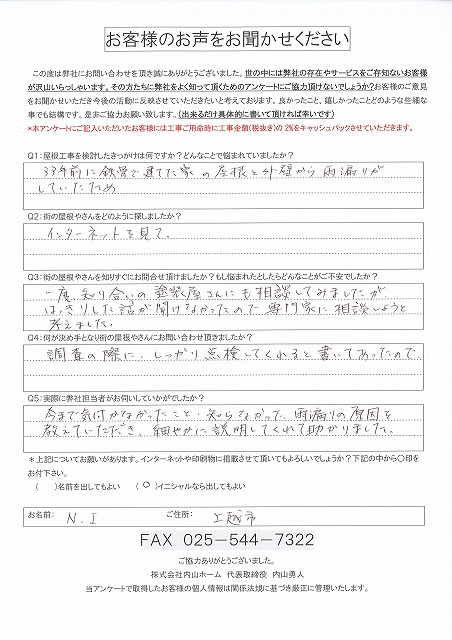 お客様のお声をお聞かせください
この度は弊社にお問い合わせを頂き誠にありがとうございました。世の中には弊社の存在やサービスをご存知ないお客様
が沢山いらっしゃいます。その方たちに弊社をよく知って頂くためのアンケートにご協力頂けないでしょうか？お客様のご意見
をお聞かせいただき今後の活動に反映させていただきたいと考えております。良かったこと、嬉しかったことどのような些細な
事でも結構です。是非ご協力お願い致します。（出来るだけ具体的に書いて頂ければ幸いです）
*本アンケートにご記入いただいたお客様には工事ご用命時に工事金額(税抜き)の 2%をキャッシュバックさせていただきます。
Q1：屋根工事を検討したきっかけは何ですか？どんなことで悩まれていましたか？
33年前に鉄骨で建てた家の屋根と外壁から雨漏りが
していたため
Q2：街の屋根やさんをどのように探しましたか？
インターネットを見て。
Q3：街の屋根やさんを知りすぐにお問合せ頂けましたか？もし悩まれたとしたらどんなことがご不安でしたか？
一度、知り合いの塗装屋さんにも相談してみましたが
はっきりした話が聞けなかったので専門家に相談しようと
考えました。
Q4：何が決め手となり街の屋根やさんにお問い合わせ頂きましたか？
調査の際に、しっかり点検してくれると書いてあったので
Q5：実際に弊社担当者がお伺いしていかがでしたか？
今まで気付かなかったこと、知らなかった雨漏りの原因を
教えていただき、細やかに説明してくれて助かりました。
＊上記についてお願いがあります。インターネットや印刷物に掲載させて頂いてもよろしいでしょうか？下記の中から〇印を
お付下さい。
（　　）名前を出してもよい　（ 〇 ）イニシャルなら出してもよい
お名前： N.I ご住所： 上越市
FAX 025-544-7322
ご協力ありがとうございました。
株式会社内山ホーム 代表取締役 内山勇人
当アンケートで取得したお客様の個人情報は関係法規に基づき厳正に管理いたします。